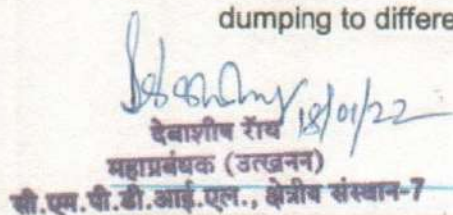 dumping to differe
18/01/22
देबाशीष रॉय
महाप्रबंधक (उत्खनन)
सी.एम.पी.डी.आई.एल., क्षेत्रीय संस्थान-7